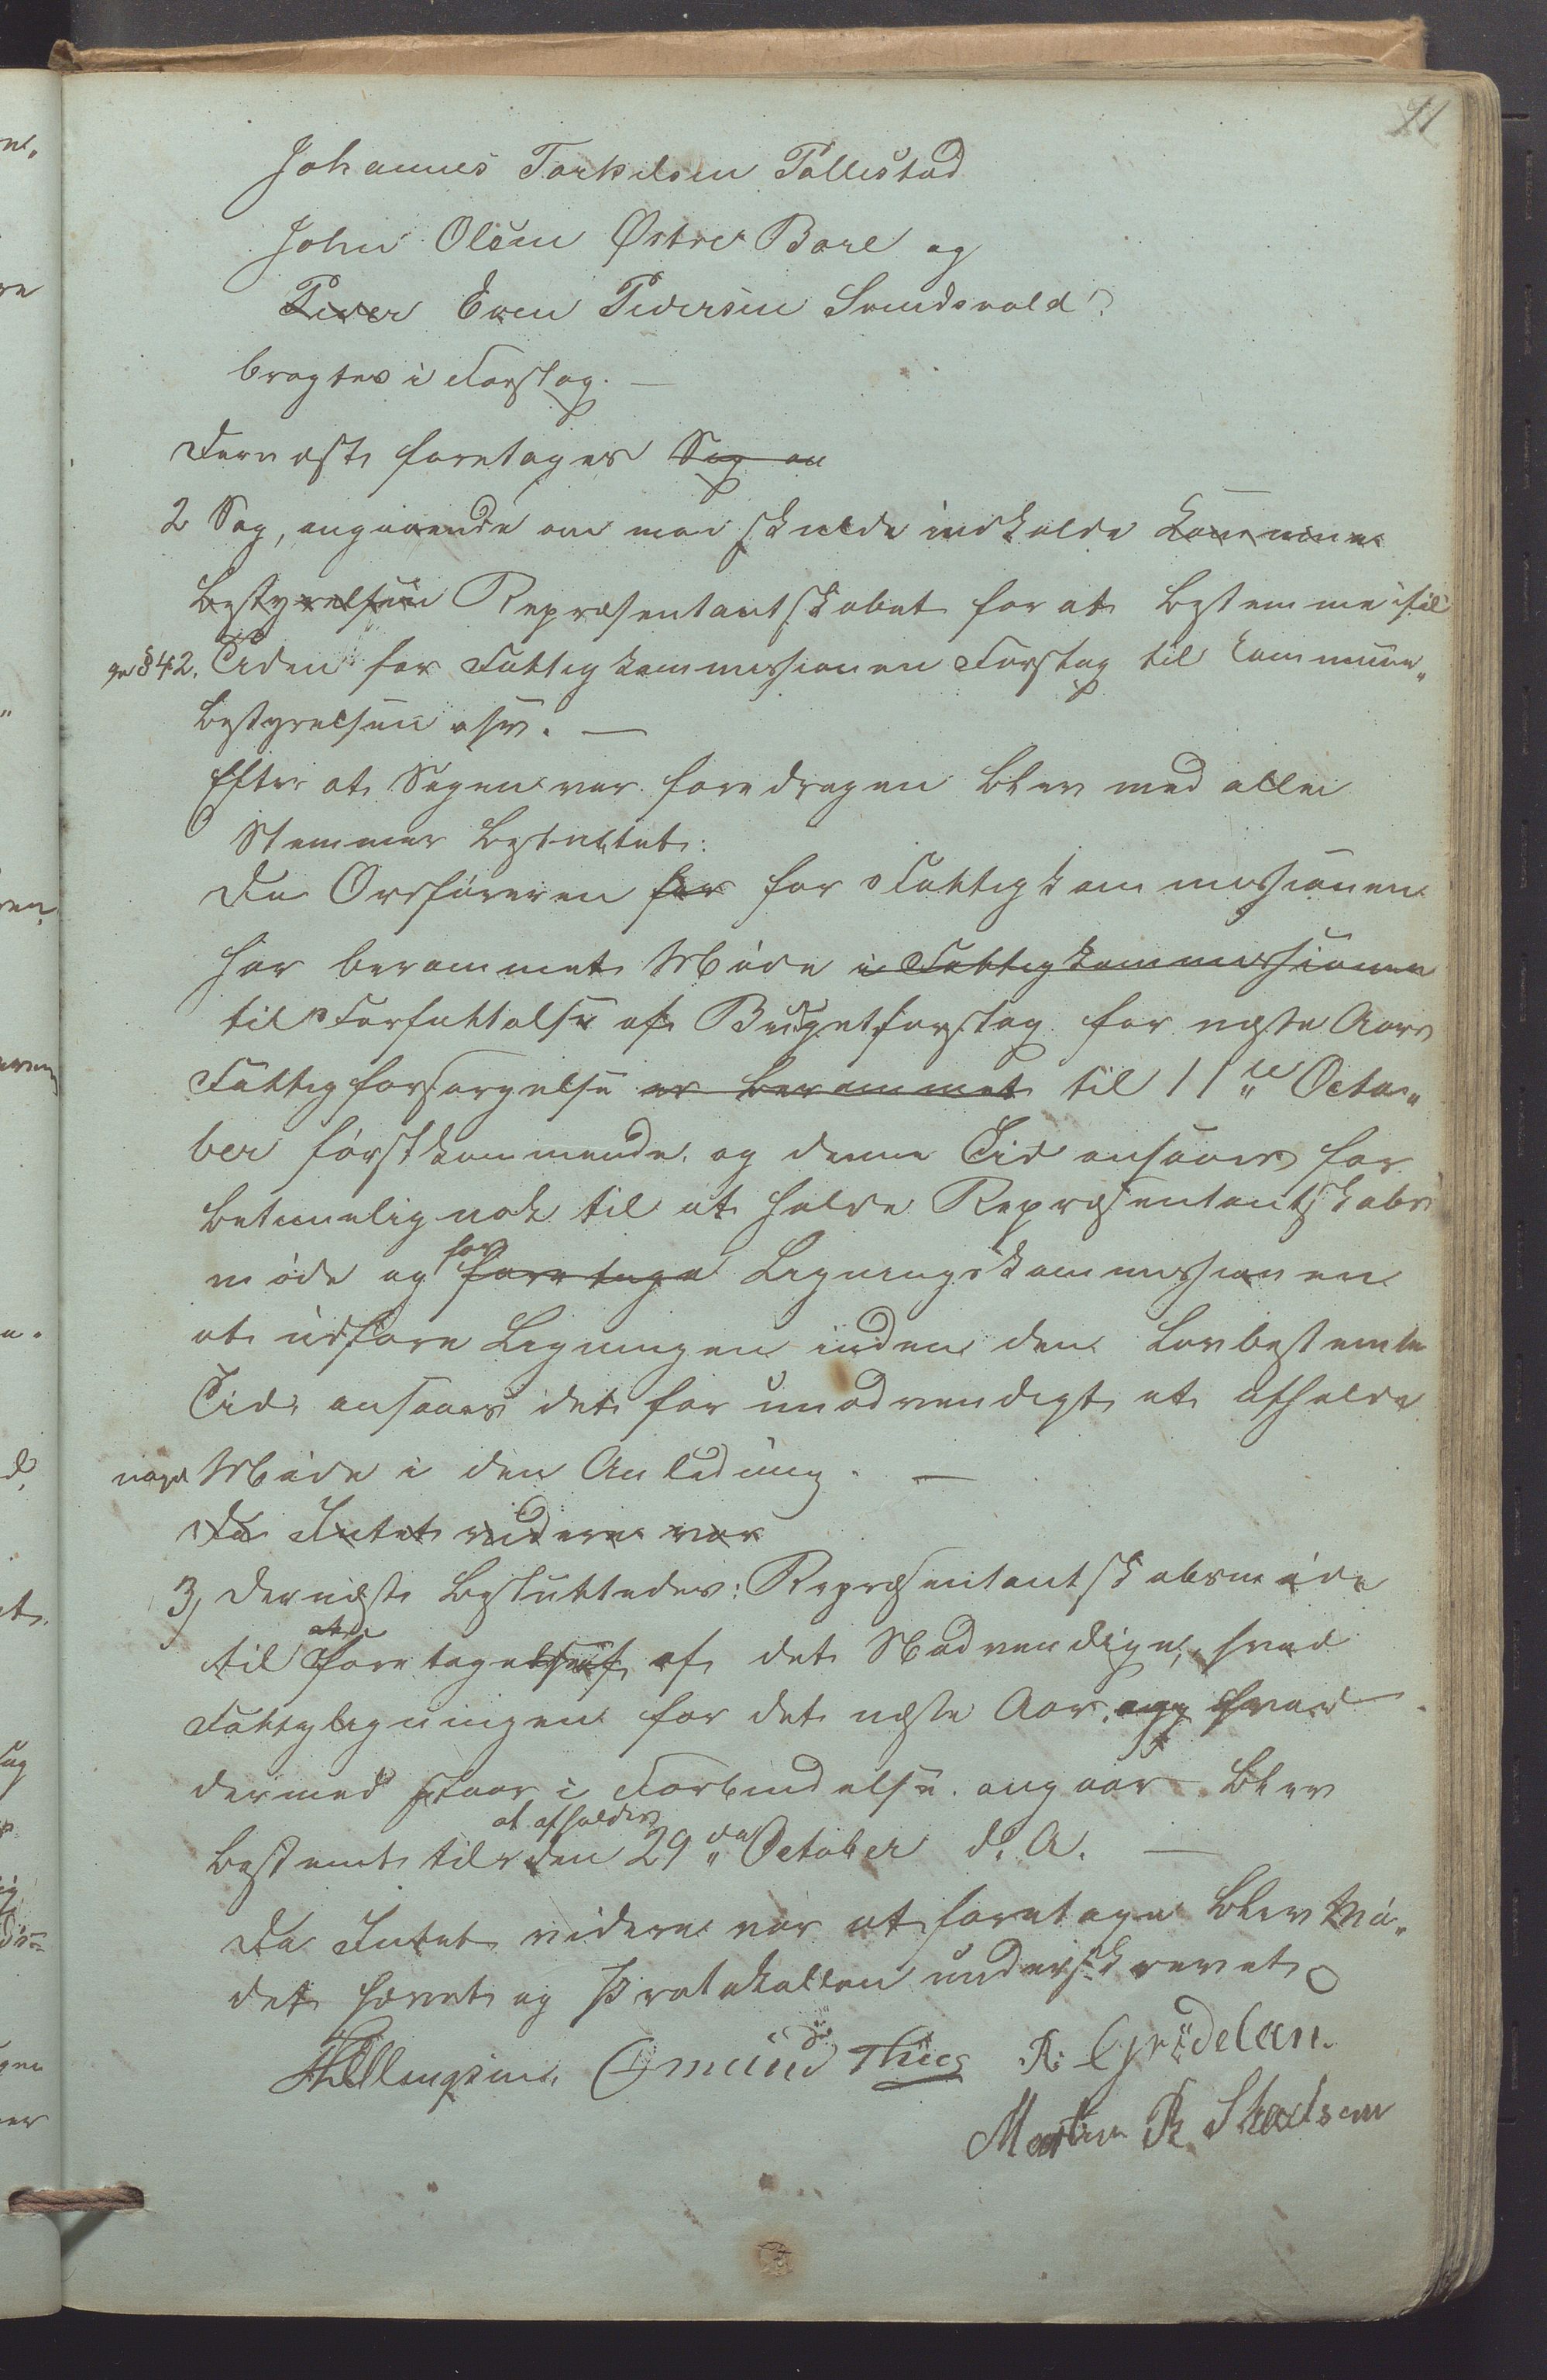 71
Johannes Torkelsen Pollestad
John Olsen Østre Bore og
Peder Even Pedersen Sundsvold
bragtes i Forslag. —
Dernæst foretoges Sag
2 Sag, angaaende om man skulde indkalde Commune
bestyrelsen Repræsentantskabet for at bestemme
§ 42. Tiden for Fattigkommissionen Forslag til Commune„
bestyrelsen osv. —
Efter at Sagen var foredragen blev med alle
Stemmer besluttet:
Da Ordføreren for for Fattigkommissionen
har berammet Møde i Fattigkommissionen
til Forfattelse af Budgetforslag for næste Aars
Fattigforsørgelse er berammet til 11te Octo„
ber førstkommende og denne Tid ansaaes for
betimelig nok til at holde Repræsentantskabs
møde og for foretage Ligningskommissionen
at udføre Ligningen inden den Lovbestemte
Tid, ansaaes det for unødvendigt at afholde
noget Møde i den Anledning. —
Da Intet videre var
3, Dernæst besluttedes: Repræsentantskabsmøde
til at foretagelse af det Nødvendige, hvad
Fattigligningen for det næste Aar og hvad
dermed staar i Forbindelse angaar blev
at afholdes
bestemt til den 29de October d. A. —
Da Intet videre var at foretage blev Mø„
det hævet og Protokollen underskrevet
Omund Thu R. Grødelan.
Martin R. Skadsem